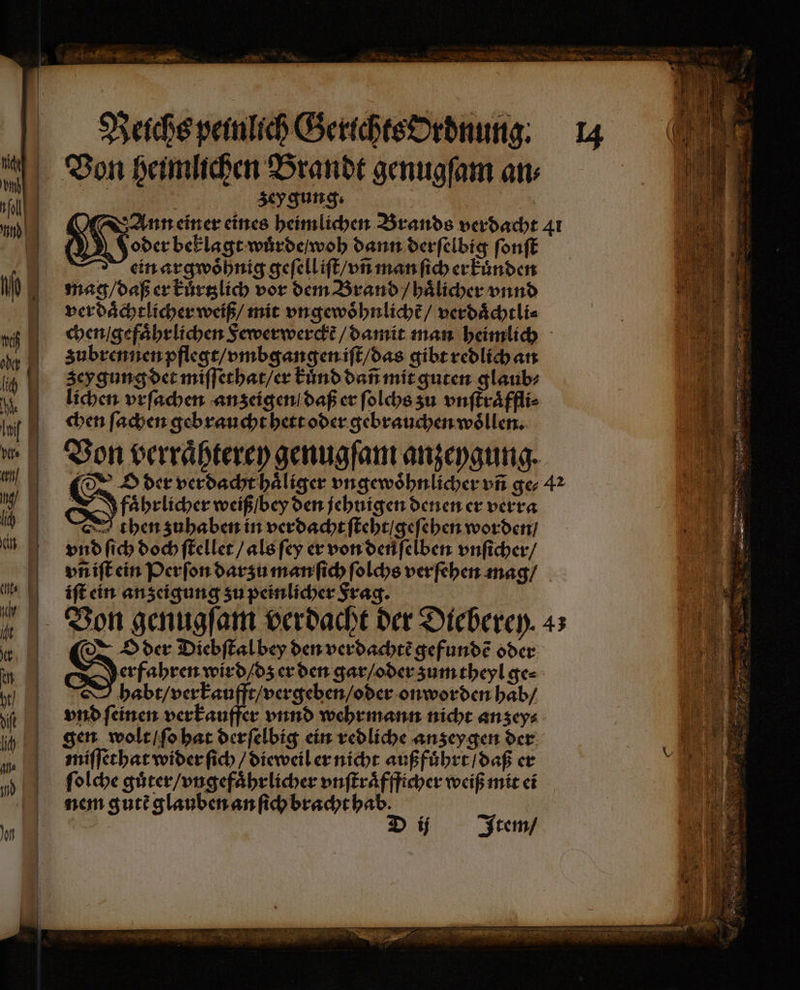 Reichs peinlich GerichtsOrdnung. 14
Von heimlichen Brandt genugſam an⸗
zeygung.
WAnn einer eines heimlichen Brands verdacht 41
oder beklagt wuͤrde/woh dann derſelbig ſonſt
ein argwoͤhnig geſell iſt/vñ man ſich erkuͤnden
mag/daß er kuͤrtzlich vor dem Brand/haͤlicher vnnd
verdaͤchtlicher weiß/mit vngewoͤhnlichẽ/verdaͤchtli⸗
chen/gefaͤhrlichen Fewerwerckẽ/damit man heimlich
zubrennen pflegt/vmbgangen iſt/das gibt redlich an
zeygung det miſſethat/er kuͤnd dañ mit guten glaub⸗
lichen vrſachen anzeigen/daß er ſolchs zu vnſtraͤffli⸗
chen ſachen gebraucht hett oder gebrauchen woͤllen.
Von verraͤhterey genugſam anzeygung.
SO der verdacht haͤliger vngewoͤhnlicher vñ ge⸗ 42
faͤhrlicher weiß/bey den jehnigen denen er verra
then zuhaben in verdacht ſteht/geſehen worden/
vnd ſich doch ſtellet/als ſey er von denſelben vnſicher/
vñ iſt ein Perſon darzu man ſich ſolchs verſehen mag/
iſt ein anzeigung zu peinlicher Frag.
Von genugſam verdacht der Dieberey. 43
SO der Diebſtal bey den verdachtẽ gefundẽ oder
erfahren wird/dz er den gar/oder zum theyl ge⸗
habt/verkaufft/vergeben/oder onworden hab/
vnd ſeinen verkauffer vnnd wehrmann nicht anzey⸗
gen wolt/ſo hat derſelbig ein redliche anzeygen der
miſſethat wider ſich/dieweil er nicht außfuͤhrt/daß er
ſolche guͤter/vngefaͤhrlicher vnſtraͤfflicher weiß mit ei
nem gutẽ glauben an ſich bracht hab.
D ij Item/